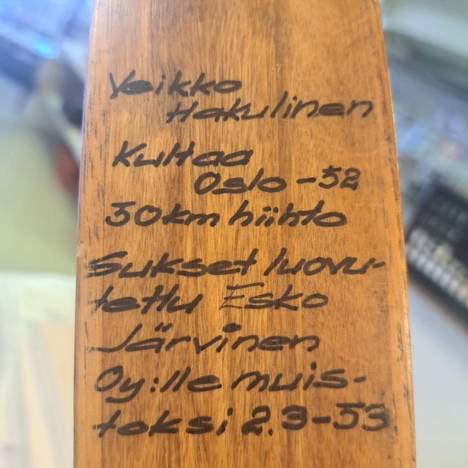 Veikko
Hakulinen
Kultaa
Oslo-52
50km hiihto
Sukset luovu-
tettu Esko
Järvinen
Oy:lle muis-
toksi 2.3-53